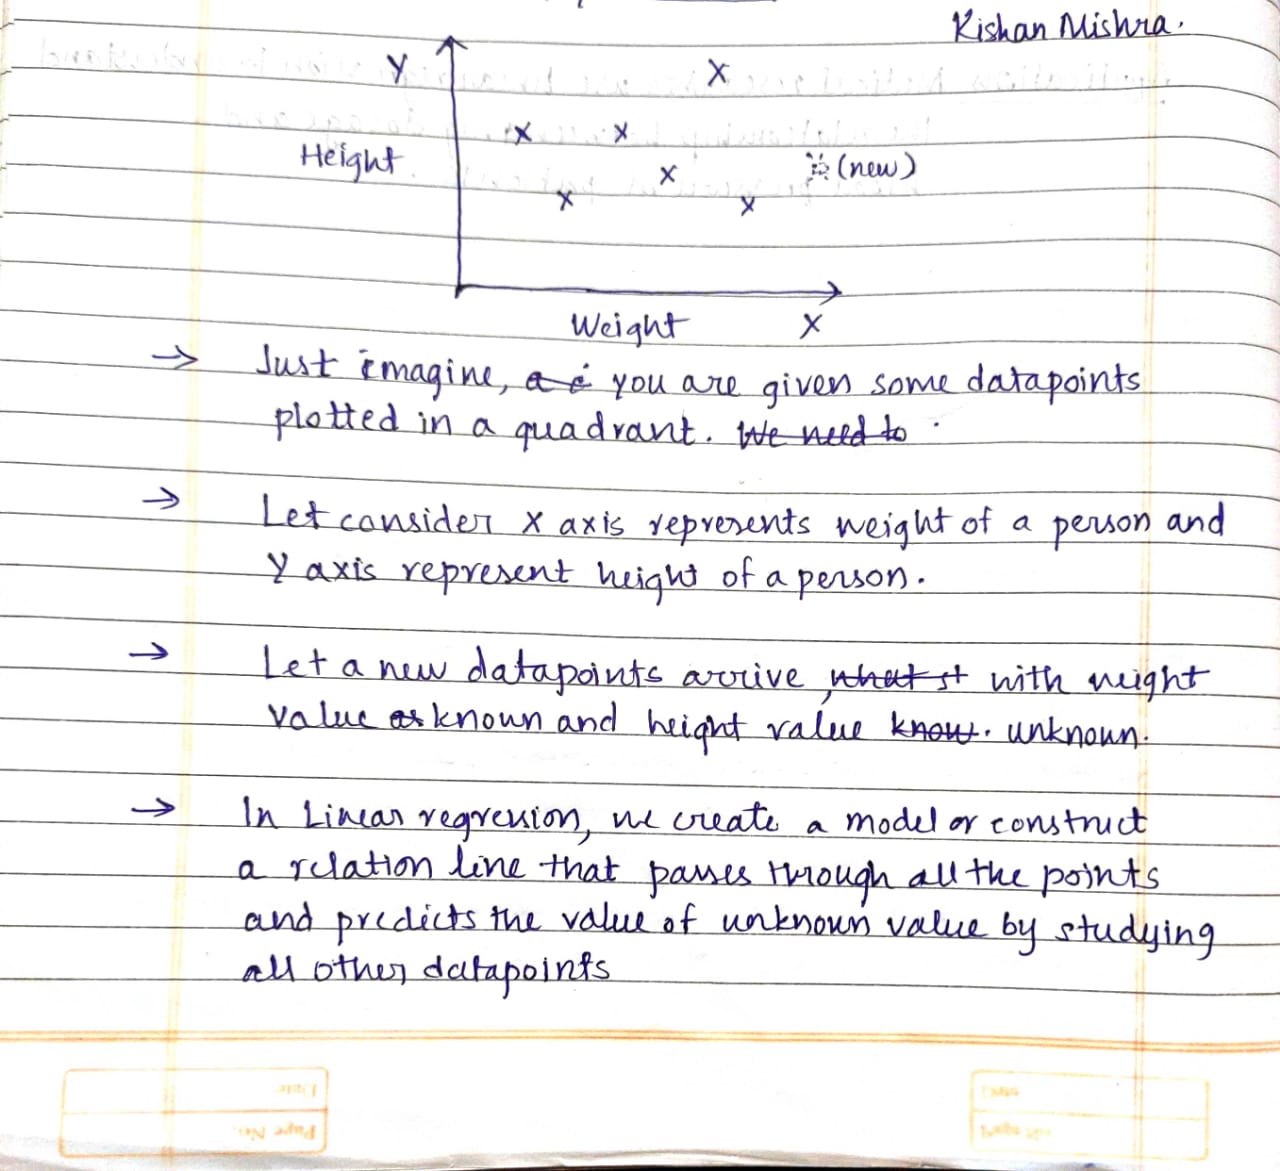 Kishan Mishra.
Y
Height
(new)
Weight X
→ Just imagine, you are given some datapoints
plotted in a quadrant. We need to
→ Let consider X axis represents weight of a person and
Y axis represent height of a person.
→ Let a new datapoints arrive, what st with weight
value as known and height value know. unknown.
→ In Linear regression, we create a model or construct
a relation line that passes through all the points
and predicts the value of unknown value by studying
all other datapoints